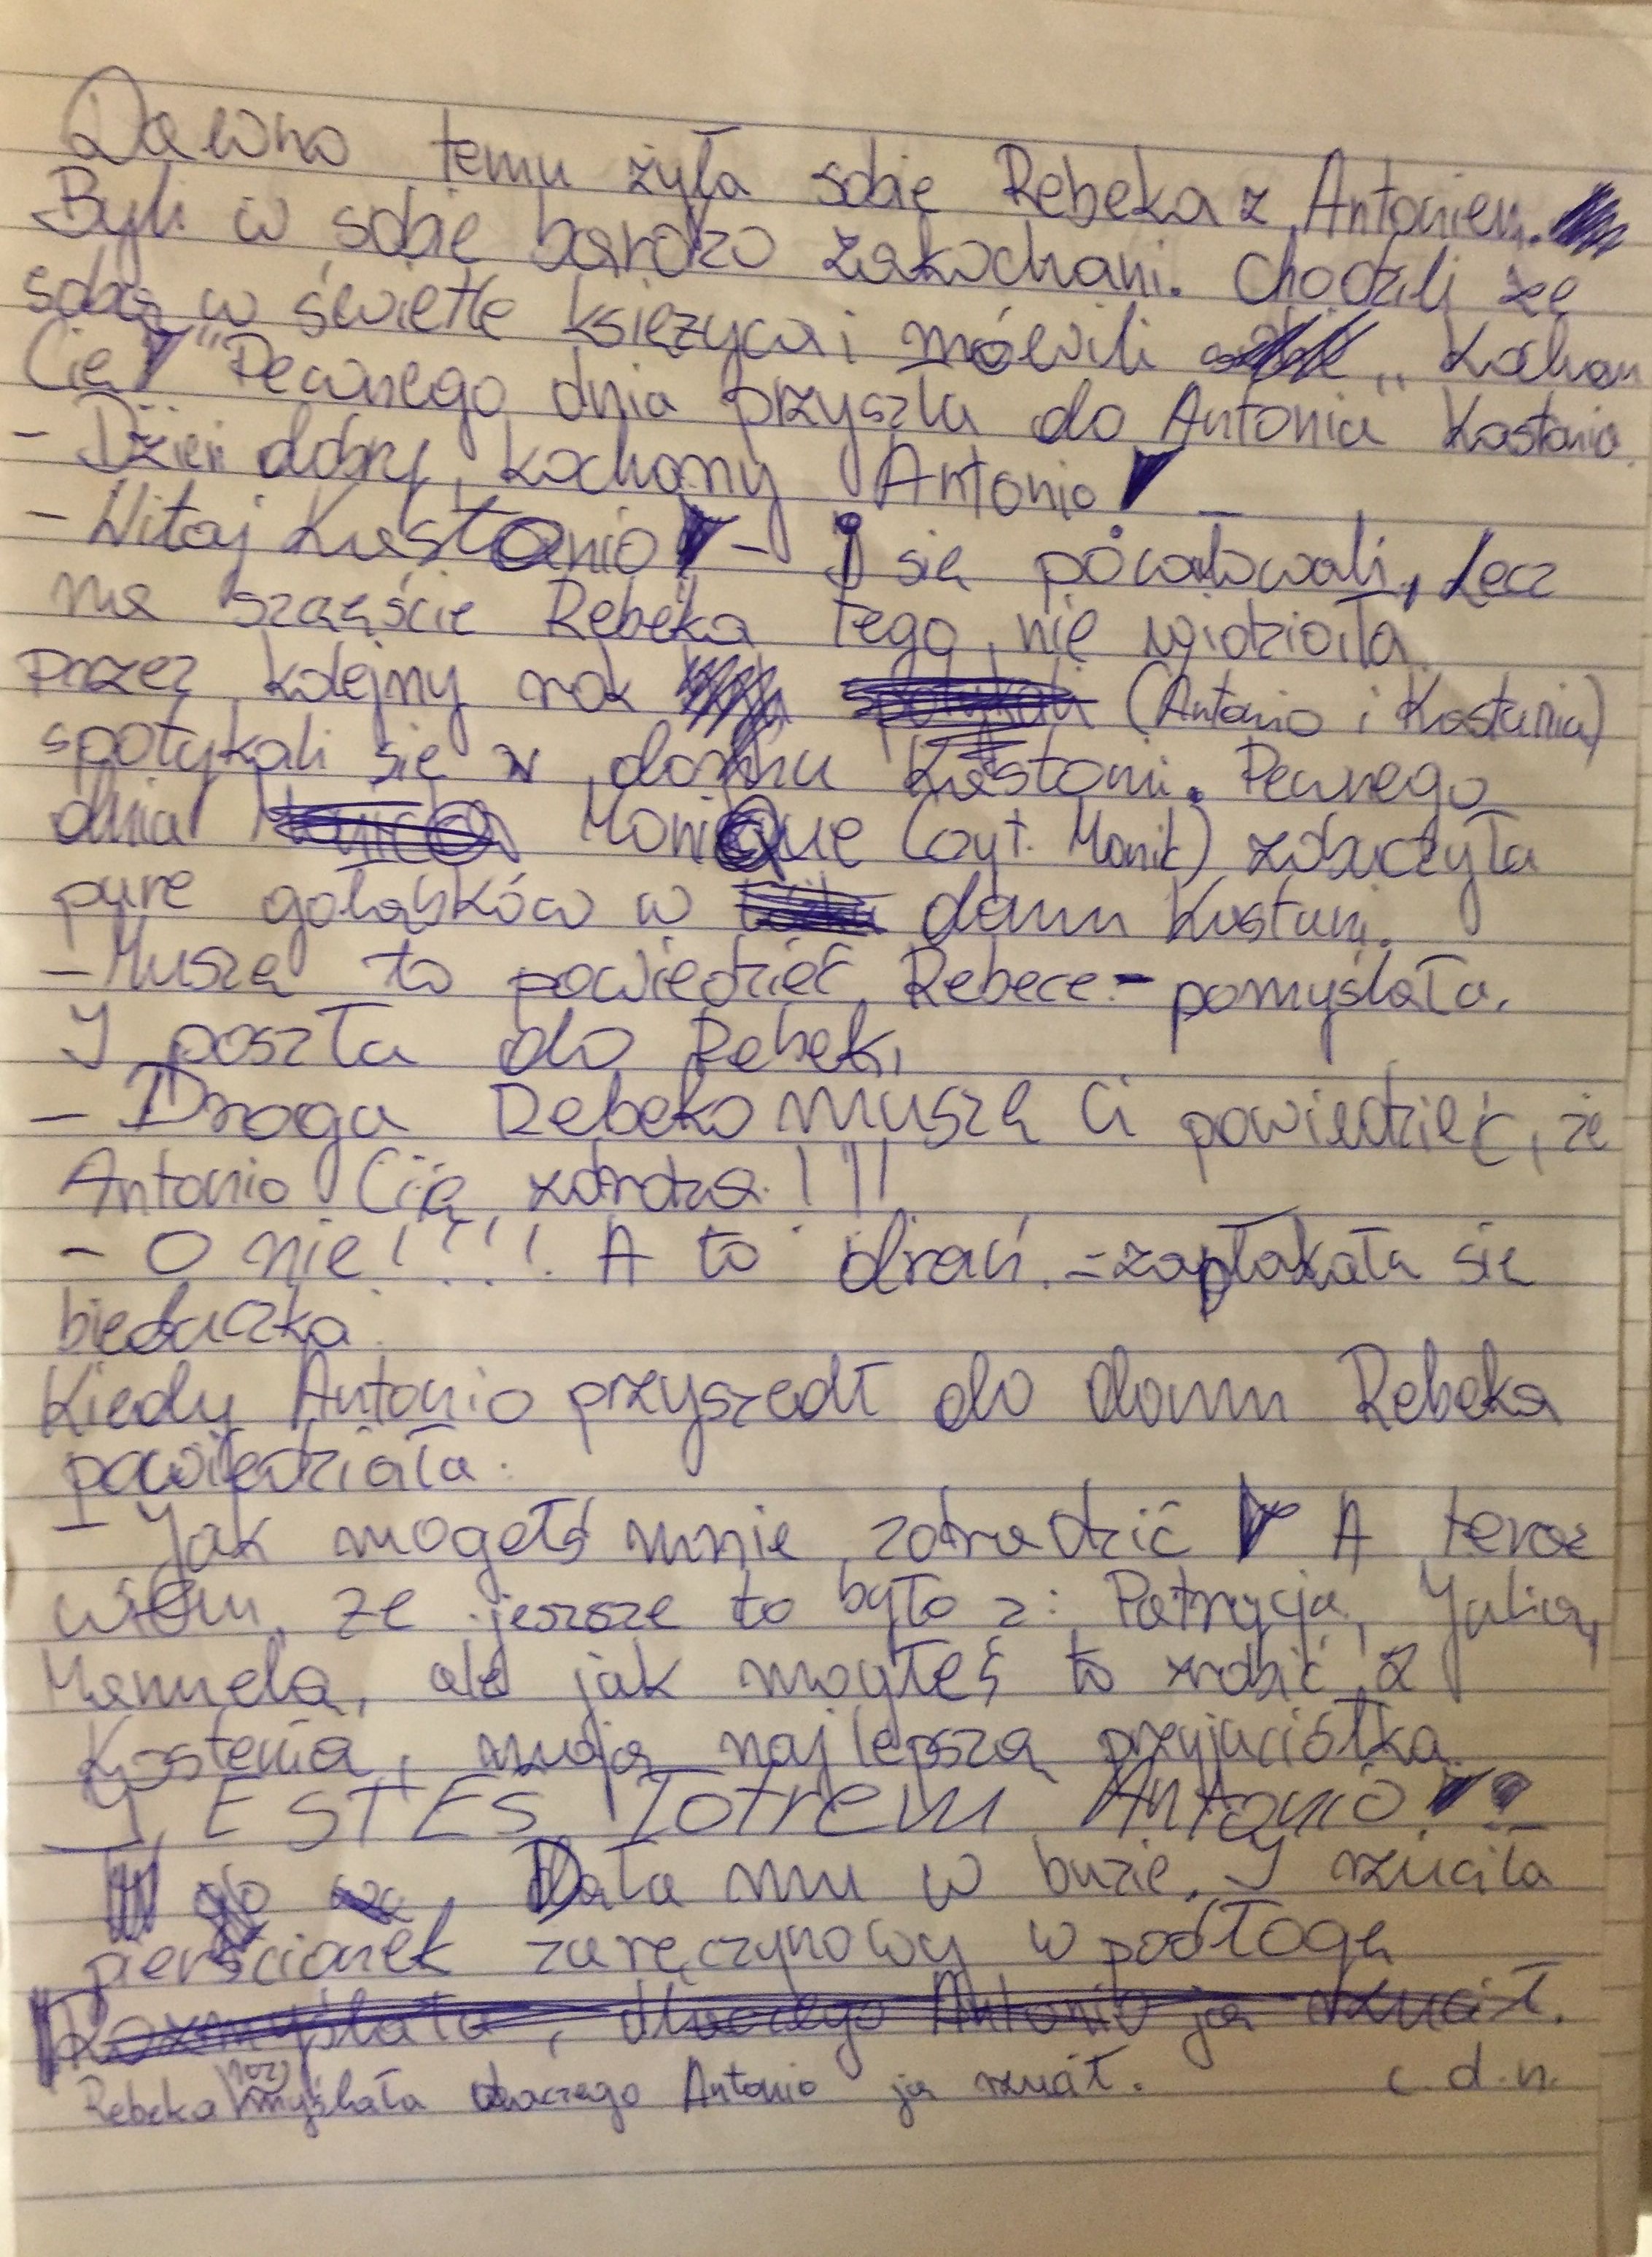 Dawno temu żyła sobie Rebeka z Antoniem.
Byli w sobie bardzo zakochani. Chodzili ze
sobą w świetle księżyca i mówili „Kocham
Cię!" Pewnego dnia przyszła do Antonia Kastania.
- Dzień dobry, kochany Antonio! -
- Witaj Kastanio! - I się pocałowali, Lecz
na szczęście Rebeka tego nie widziała.
Przez kolejny rok (Antonio i Kastania)
spotykali się w domku Kastani. Pewnego
dnia Monique (czyt. Monik) zobaczyła
parę gołąbków w domu Kastani.
- Muszę to powiedzieć Rebece - pomyślała.
I poszła do Rebeki
- Droga Rebeko muszę Ci powiedzieć, że
Antonio Cię zdradza!!!
- O nie!!!! A to drań. - zapłakała się
biedaczka.
Kiedy Antonio przyszedł do domu Rebeka
powiedziała:
- Jak mogełś mnie zdradzić! A teraz
wiem, że jeszsze to było z: Patrycją, Julią,
Manuelą, ale jak mogłeś to zrobić z
Kastanią, moją najlepszą przyjaciółką.
JESTEŚ łotrem Antonio!!
Dała mu w buzię. I rzuciła
pierścionek zaręczynowy w podłogę
Rozmyślała, dlaczego Antonio ją rzucił.
Rebeka rozmyślała dlaczego Antonio ją rzucił. c.d.n.